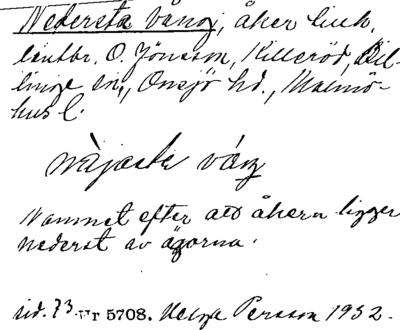 Nedersta vång, åker huk.
lantbr. O. Jönsson, Killeröd, Bil-
linge sn, Onsjö hd., Malmö-
hus l.
vång
Namnet efter att åkern ligger
nederst av ägorna.
sid. 73 ur 5708. Helge Persson 1932.